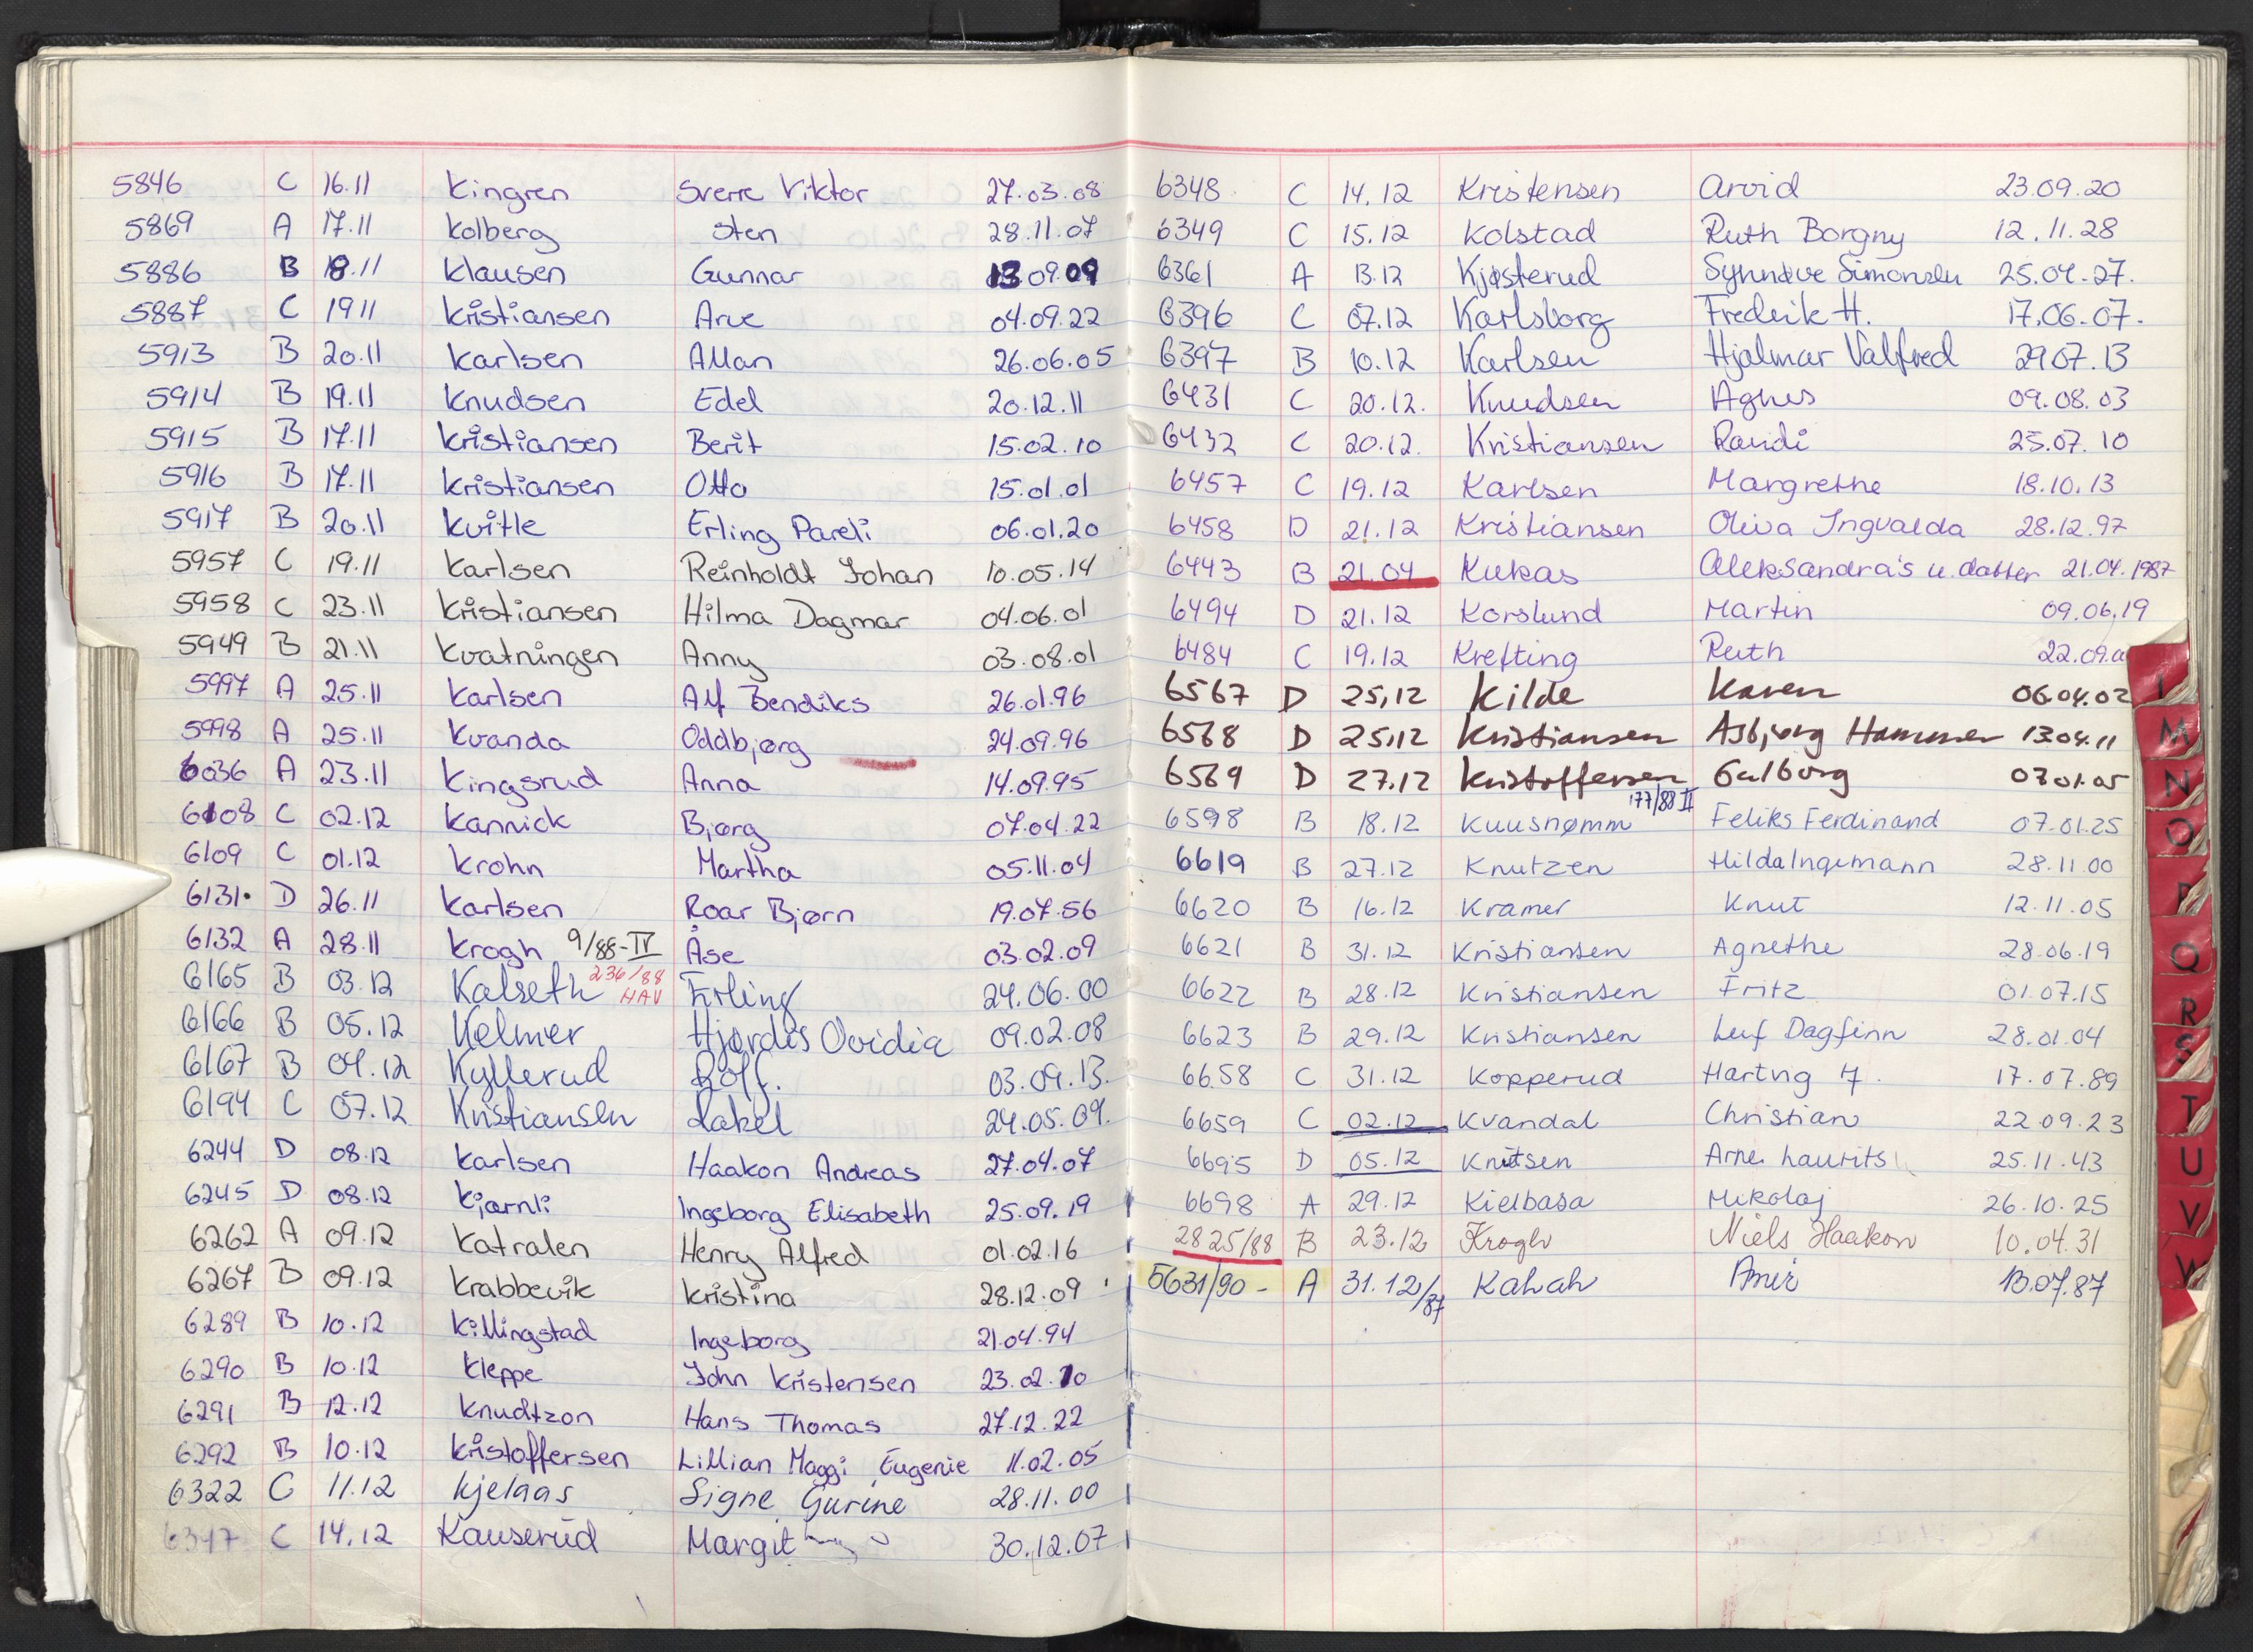 5846 C 16.11 Kingren Sverre Viktor 27.03.08
5869 A 17.11 Kolberg Sten 28.11.07
5886 B 18.11 Klausen Gunnar 13.09.09
5887 C 19 11 Kristiansen Arve 04.09.22
5913 B 20.11 Karlsen Allan 26.06.05
5914 B 19.11 Knudsen Edel 20.12.11
5915 B 17.11 Kristiansen Berit 15.02.10
5916 B 17.11 Kristiansen Otto 15.01.01
5917 B 20.11 Kvitle Erling Pareli 06.01.20
5957 C 19.11 Karlsen Reinholdt Johan 10.05.14
5958 C 23.11 Kristiansen Hilma Dagmar 04.06.01
5949 B 21.11 Kvatningen Anny 03.08.01
5997 A 25.11 Karlsen Alf Bendiks 26.01.96
5998 A 25.11 Kvanda Oddbjørg 24.09.96
6036 A 23.11 Kingsrud Anna 14.09.95
6108 C 02.12 Kannick Bjørg 07.04.22
6109 C 01.12 Krohn Martha 05.11.04
6131. D 26.11 Karlsen Roar Bjørn 19.07.56
6132 A 28.11 Krogh 9/88-IV Åse 03.02.09
6165 B 03.12 Kalseth 236/88 HAV Erling 24.06.00
6166 B 05.12 Kelmer Hjørdis Ovidia 09.02.08
6167 B 04.12 Kyllerud Rolf. 03.09.13.
6194 C 07.12 Kristiansen Rakel 24.05.09.
6244 D 08.12 Karlsen Haakon Andreas 27.04.07
6245 D 08.12 Kjærnli Ingeborg Elisabeth 25.09.19
6262 A 09.12 Katralen Henry Alfred 01.02.16
6267 B 09.12 Krabbevik Kristina 28.12.09
6289 B 10.12 Killingstad Ingeborg 21.04.94
6290 B 10.12 Kleppe John Kristensen 23.02.10
6291 B 12.12 Knudtzon Hans Thomas 27.12.22
6292 B 10.12 Kristoffersen Lillian Maggi Eugenie 11.02.05
6322 C 11.12 Kjelaas Signe Gurine 28.11.00
6347 C 14.12 Kauserud Margit 30.12.07
6348 C 14.12 Kristensen Arvid 23.09.20
6349 C 15.12 Kolstad Ruth Borgny 12.11.28
6361 A 13.12 Kjøsterud Synnøve Simonsen 25.04.27.
6396 C 07.12 Karlsborg Fredrik H. 17.06.07.
6397 B 10.12 Karlsen Hjalmar Valfred 29.07.13
6431 C 20.12. Knudsen Agnes 09.08.03
6432 C 20.12. Kristiansen Randi 25.07.10
6457 C 19.12 Karlsen Margrethe 18.10.13
6458 D 21.12 Kristiansen Oliva Ingvalda 28.12.97
6443 B 21.04 Kukas Aleksandra's u.datter 21.04.1987
6494 D 21.12 Korslund Martin 09.06.19
6484 C 19.12 Krefting Ruth 22.09.0
6567 D 25,12 Kilde Karen 06.04.02
6568 D 25,12 Kristiansen Asbjørg Hammer 13.04.11
6569 D 27.12 Kristoffersen Galborg 03 01.05
6598 B 18.12 Kuusnømm 177/88 II Feliks Ferdinand 07.01.25
6619 B 27.12 Knutzen Hilda Ingemann 28.11.00
6620 B 16.12 Kramer Knut 12.11.05
6621 B 31.12 Kristiansen Agnethe 28.06.19
6622 B 28.12 Kristiansen Fritz 01.07.15
6623 B 29.12 Kristiansen Leif Dagfinn 28.01.04
6658 C 31.12 Kopperud Hartvig 17.07.89
6659 C 02.12 Kvandal Christian 22.09.23
6695 D 05.12 Knutsen Arne Laurits 25.11.43
6698 A 29.12 Kielbasa Mikolaj 26.10.25
2825/88 B 23.12 Krogh Niels Haakon 10.04.31
5631/90 - A 31.12/87 Kahah Amir 13.07.87
M
N
O
P
Q
R
S
T
U
V
W